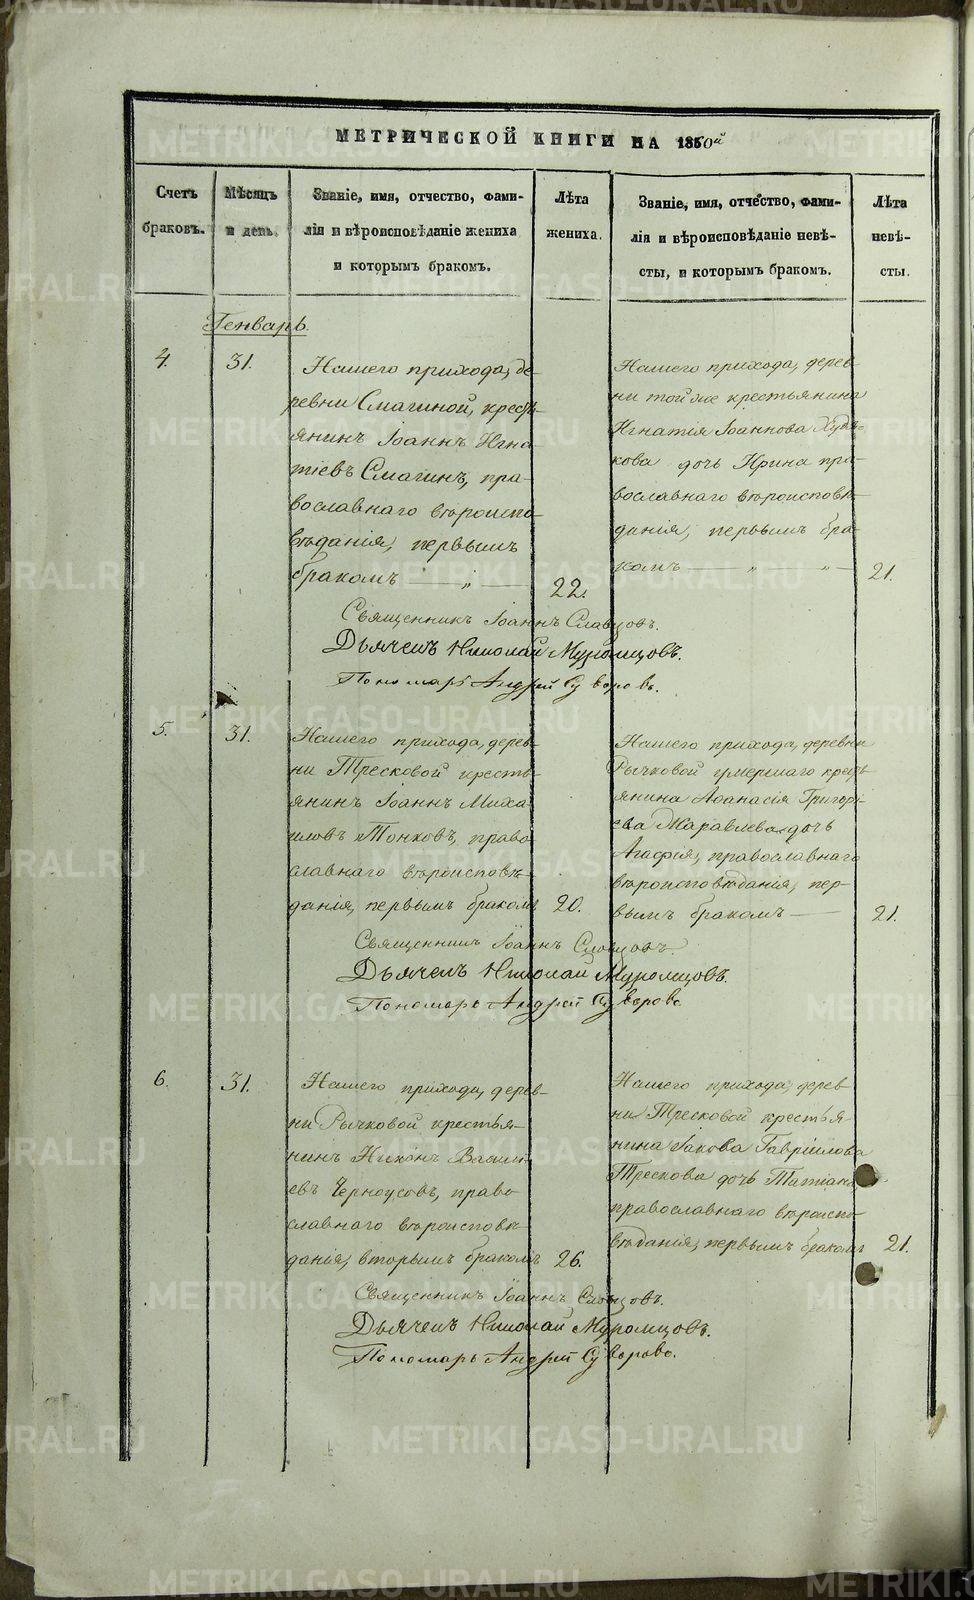 МЕТРИЧЕСКОЙ КНИГИ НА 1860й
Счетъ браковъ.
Мѣсяцъ и день.
Званіе, имя, отчество, фами-
лія и вѣроисповѣданіе жениха
и которымъ бракомъ.
Лѣта жениха.
Званіе, имя, отчество, фами-
лія и вѣроисповѣданіе невѣ-
сты, и которымъ бракомъ.
Лѣта невѣ-
сты.
Генварь.
4.
31.
Нашего прихода, де-
ревни Смагиной, кресть-
янинъ Іоаннъ Игна
тіевъ Смагинъ, пра-
вославнаго вѣроиспо-
вѣданія, первымъ
бракомъ — „ —
22.
Нашего прихода, дерев-
ни той же крестьянина
Игнатія Іоаннова Худя-
кова дочь Ирина пра-
вославнаго вѣроисповѣ-
данія, первымъ бра-
комъ — „ — „ —
21.
Священникъ Іоаннъ Словцовъ.
Дьячекъ Николай Муромцовъ.
Пономарь Андрей Суворовъ.
5.
31.
Нашего прихода, дерев-
ни Тресковой кресть-
янинъ Іоаннъ Миха
иловъ Тонковъ, право
славнаго вѣроисповѣ-
данія, первымъ бракомъ
20.
Нашего прихода, деревни
Рычковой умершаго кресть-
янина Аѳанасія Григорі-
ева Жаравлева дочь
Агафія, православнаго
вѣроисповѣданія, пер-
вымъ бракомъ —
21.
Священникъ Іоаннъ Словцовъ.
Дьячекъ Николай Муромцовъ.
Пономарь Андрей Суворовъ.
6.
31.
Нашего прихода, дерев-
ни Рычковой крестья-
нинъ Никонъ Василь-
евъ Черноусовъ, право
славнаго вѣроисповѣ
данія, вторымъ бракомъ
26.
Нашего прихода, дерев
ни Тресковой крестья-
нина Іакова Гавріилова
Трескова дочь Татіана
православнаго вѣроиспо-
вѣданія, первымъ бракомъ
21.
Священникъ Іоаннъ Словцовъ.
Дьячекъ Николай Муромцовъ.
Пономарь Андрей Суворовъ.
METRIKI.GASO-URAL.RU